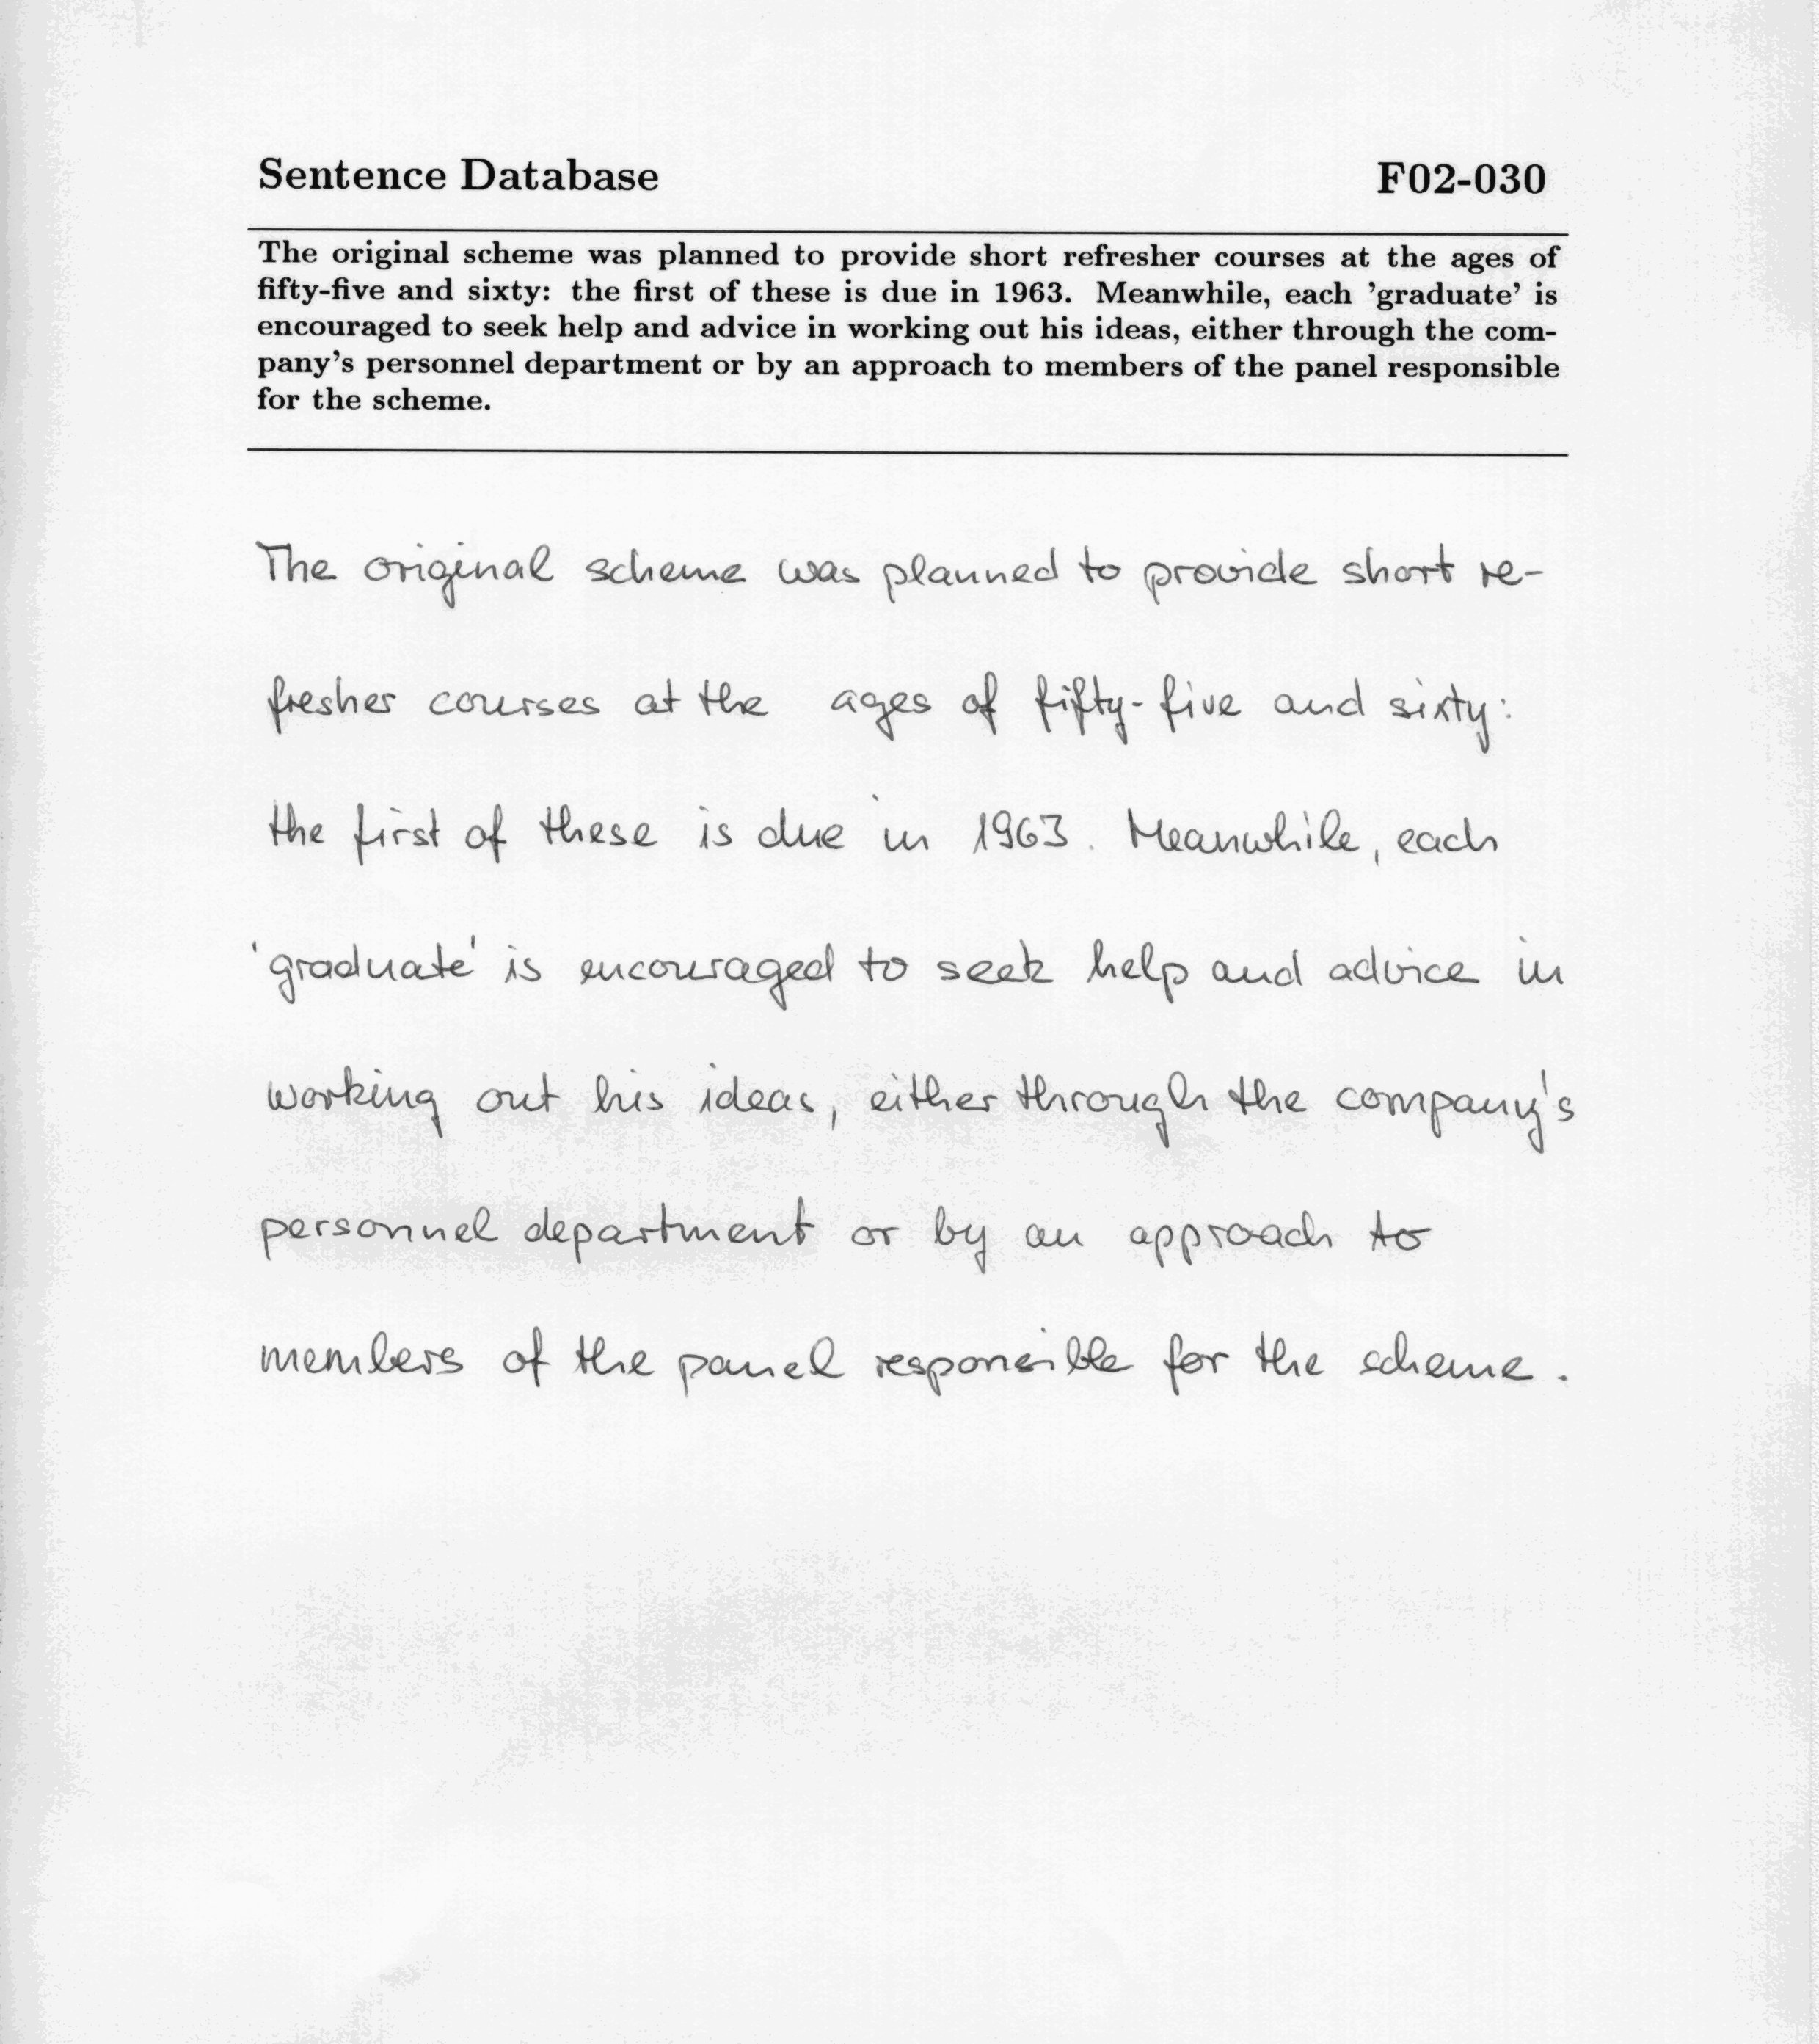 Sentence Database F02-030
The original scheme was planned to provide short refresher courses at the ages of
fifty-five and sixty: the first of these is due in 1963. Meanwhile, each 'graduate' is
encouraged to seek help and advice in working out his ideas, either through the com-
pany's personnel department or by an approach to members of the panel responsible
for the scheme.
The original scheme was planned to provide short re-
fresher courses at the ages of fifty-five and sixty:
the first of these is due in 1963. Meanwhile, each
'graduate' is encouraged to seek help and advice in
working out his ideas, either through the company's
personnel department or by an approach to
members of the panel responsible for the scheme.